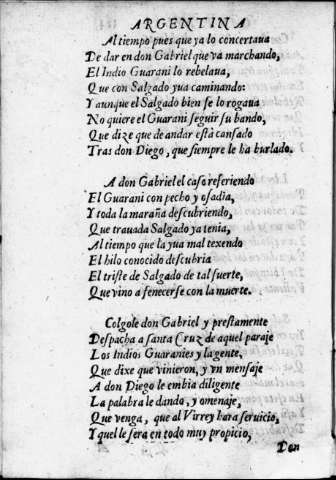 ARGENTINA
Al tiempo pues que ya lo concertaua
De dar en don Gabriel que va marchando,
El Indio Guarani lo rebelaua,
Que con Salgado yua caminando:
Y aunque el Salgado bien se lo rogaua
No quiere el Guarani seguir su bando,
Que dize que de andar està cansado
Tras don Diego, que siempre le ha burlado.
A don Gabriel el caso referiendo
El Guarani con pecho y osadia,
Y toda la maraña descubriendo,
Que trauada Salgado ya tenia,
Al tiempo que la yua mal texendo
El hilo conocido descubria
El triste de Salgado de tal suerte,
Que vino a fenecerse con la muerte.
Colgole don Gabriel y prestamente
Despacha a santa Cruz de aquel paraje
Los Indios Guaranies y la gente,
Que dixe que vinieron, y vn mensaje
A don Diego le embia diligente
La palabra le dando, y omenaje,
Que venga, que al Virrey hara seruicio,
Y quel le sera en todo muy propicio,
Don